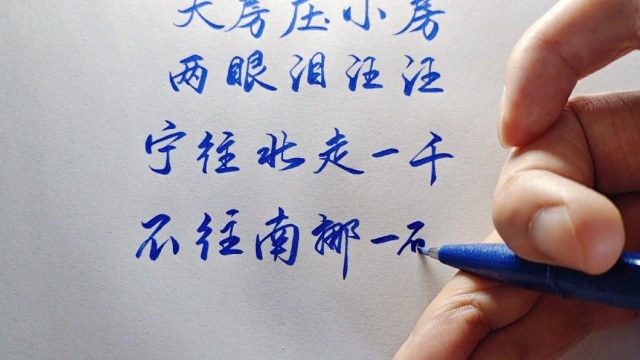 大房压小房
两眼泪汪汪
宁往北走一千
不往南挪一石